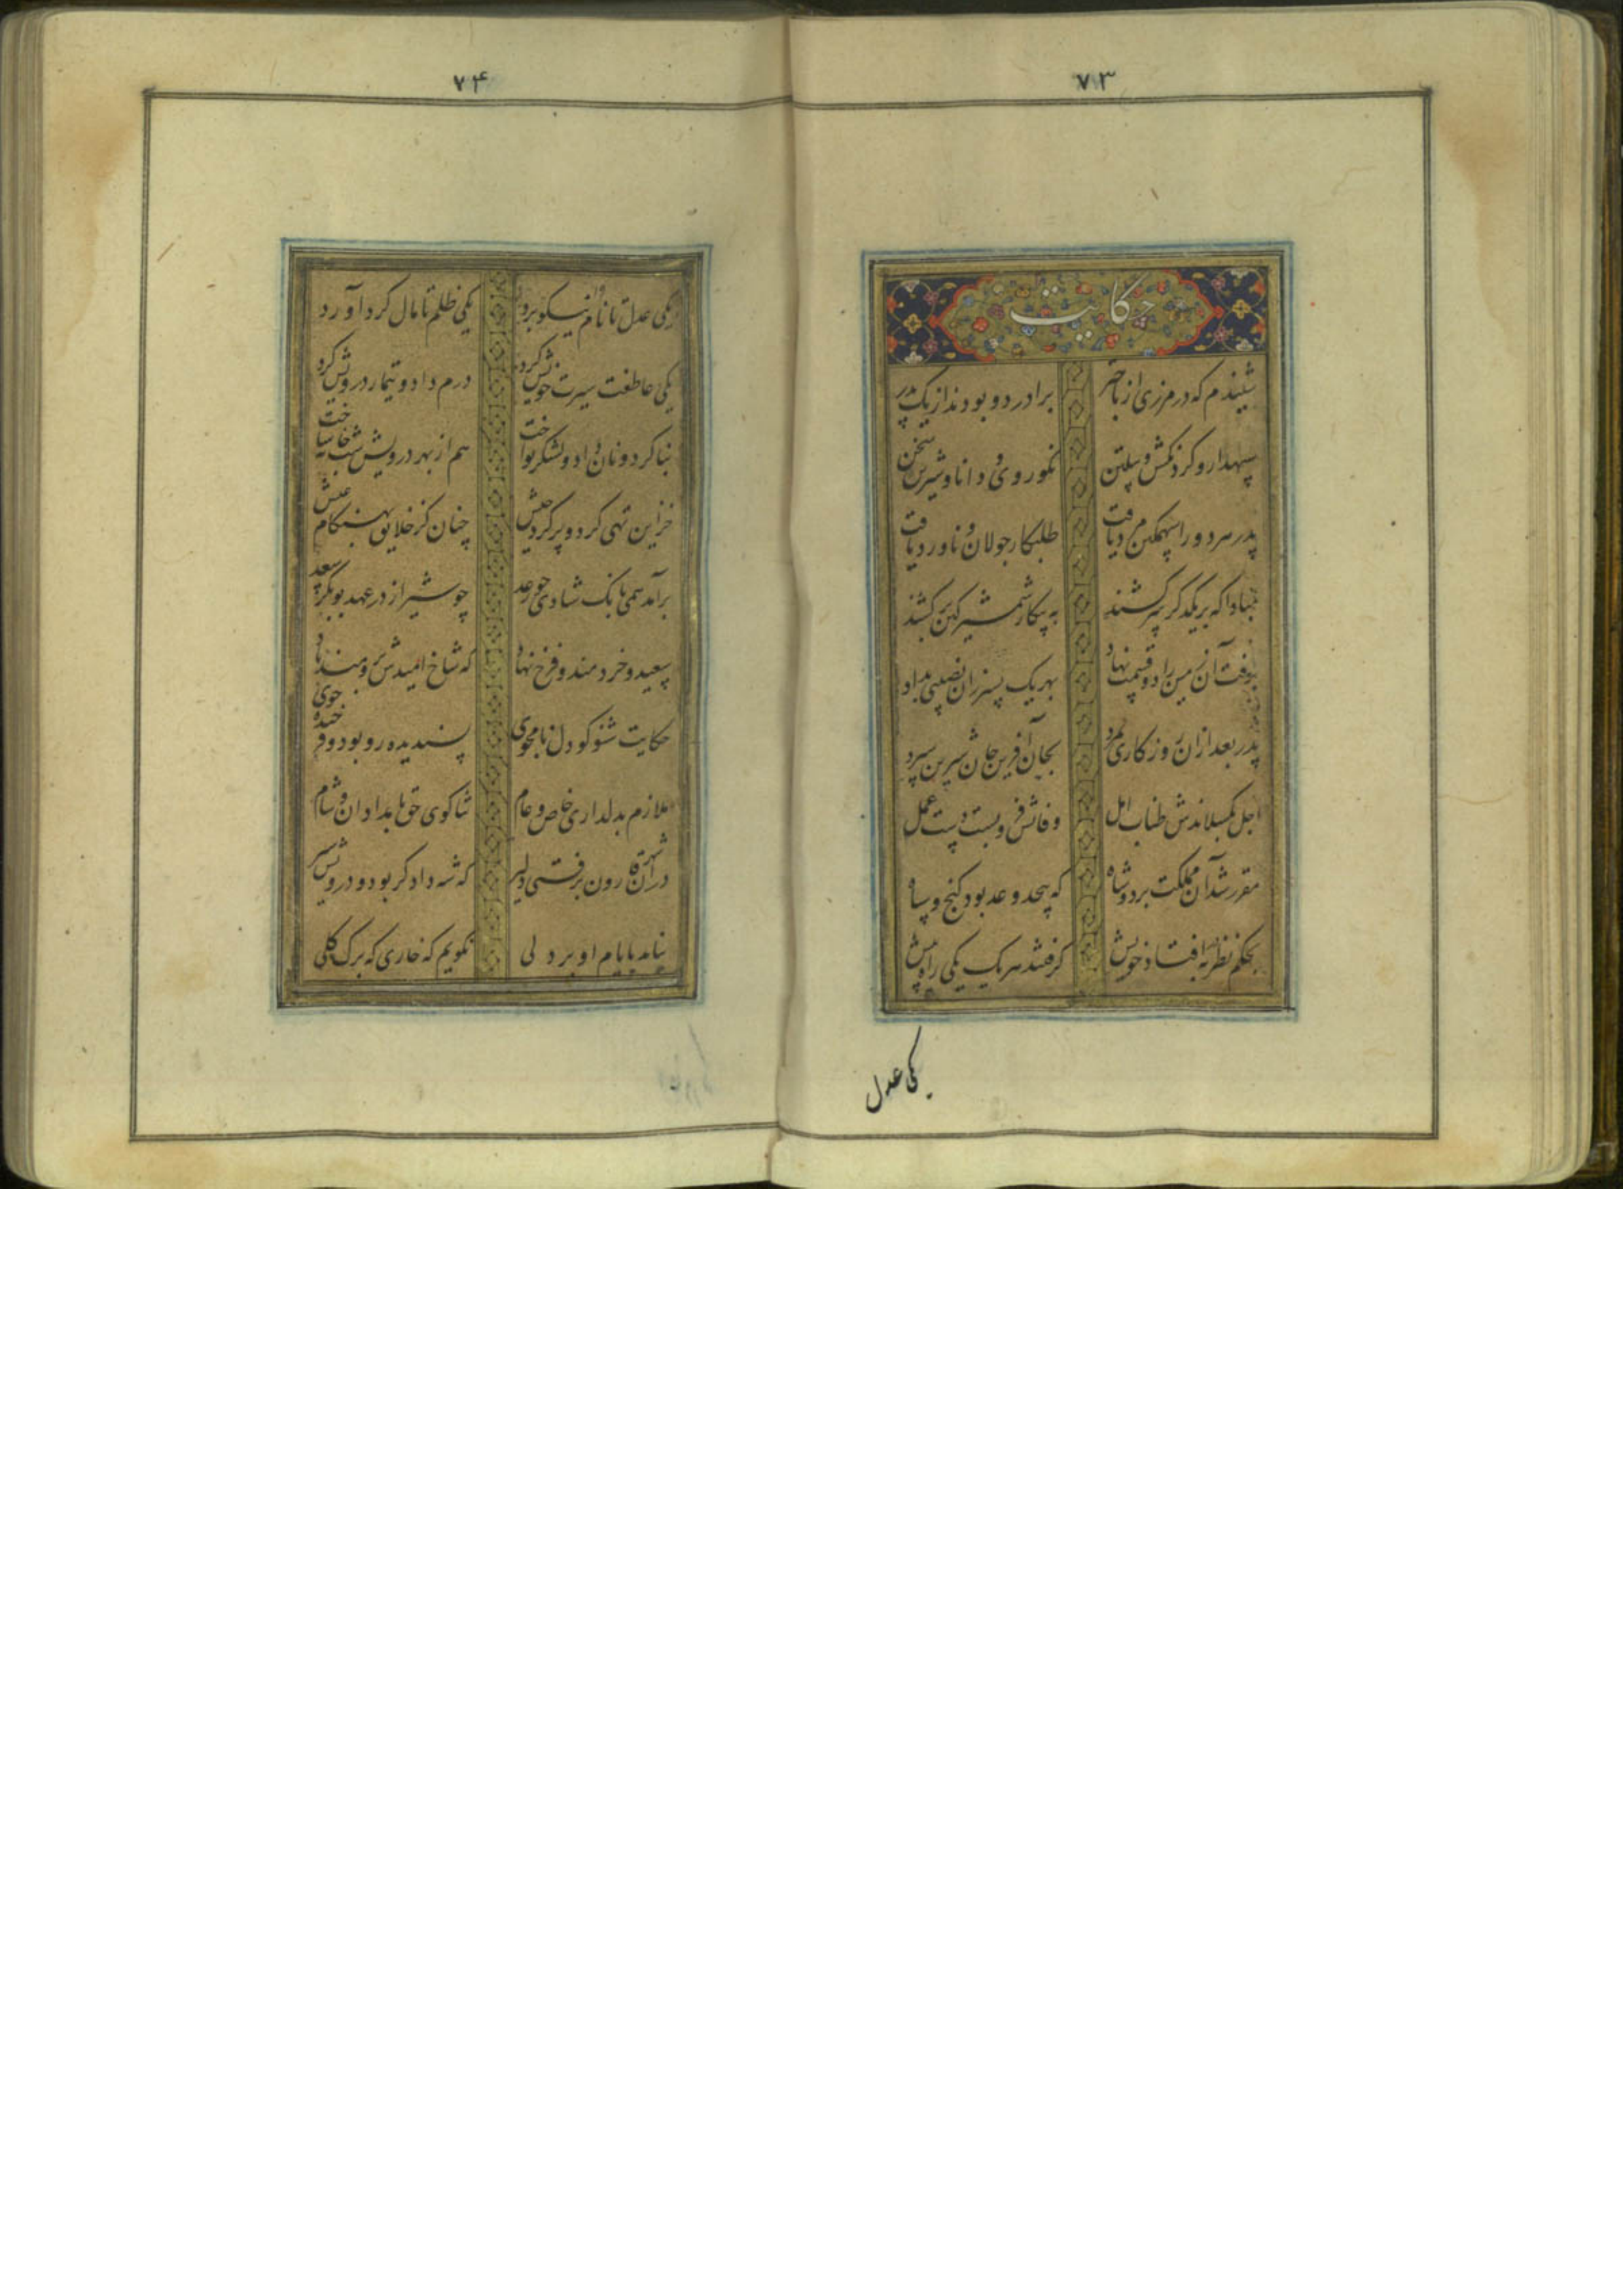 ۷۳
حکایت
شنیدم که در مرزی از باختر برادر دو بودند از یک پدر
سپهدار و گردنکش و پیلتن نکوروی و دانا و شیرین سخن
پدر هر دو را سهمگین مرد یافت طلبکار جولان و ناورد یافت
مبادا که بر یکدگر سر کشند به پیکار شمشیر کین برکشند
برفت آن زمین را دو قسمت نهاد بهر یک پسر زان نصیبی بداد
پدر بعد ازان روزگاری شمرد بجان آفرین جان شیرین سپرد
اجل بگسلاندش طناب امل وفاتش فرو بست دست عمل
مقرر شد آن مملکت بر دو شاه که بیحد و عد بود گنج و سپاه
بحکم نظر در به افتاد خویش گرفتند هر یک یکی راه پیش
یکی عدل
۷۴
یکی عدل تا نام نیکو برد یکی ظلم تا مال گرد آورد
یکی عاطفت سیرت خویش کرد درم داد و تیمار درویش کرد
بنا کرد و نان داد و لشکر نواخت هم از بهر درویش شبخانه ساخت
خزاین تهی کرد و پر کرد جیش چنان کز خلایق بهنگام عیش
برآمد همی بانگ شادی چو رعد چو شیراز در عهد بوبکر سعد
سعید و خردمند و فرخ نهاد که شاخ امیدش برومند باد
حکایت شنو کودل نامجوی پسندیده رو بود و فرخنده خوی
ملازم بدلداری خاص و عام ثناگوی حق بامدادان و شام
در آن شهر قارون برفتی دلیر که شه دادگر بود و درویش سیر
نیامد بایام او بر دلی نگویم که خاری که برگ گلی